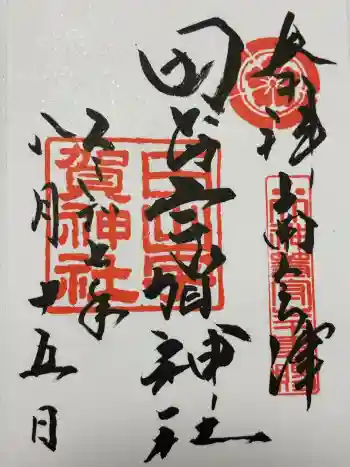 奉拝 南会津
田出宇賀神社
年
八月十五日
田出宇
賀神社